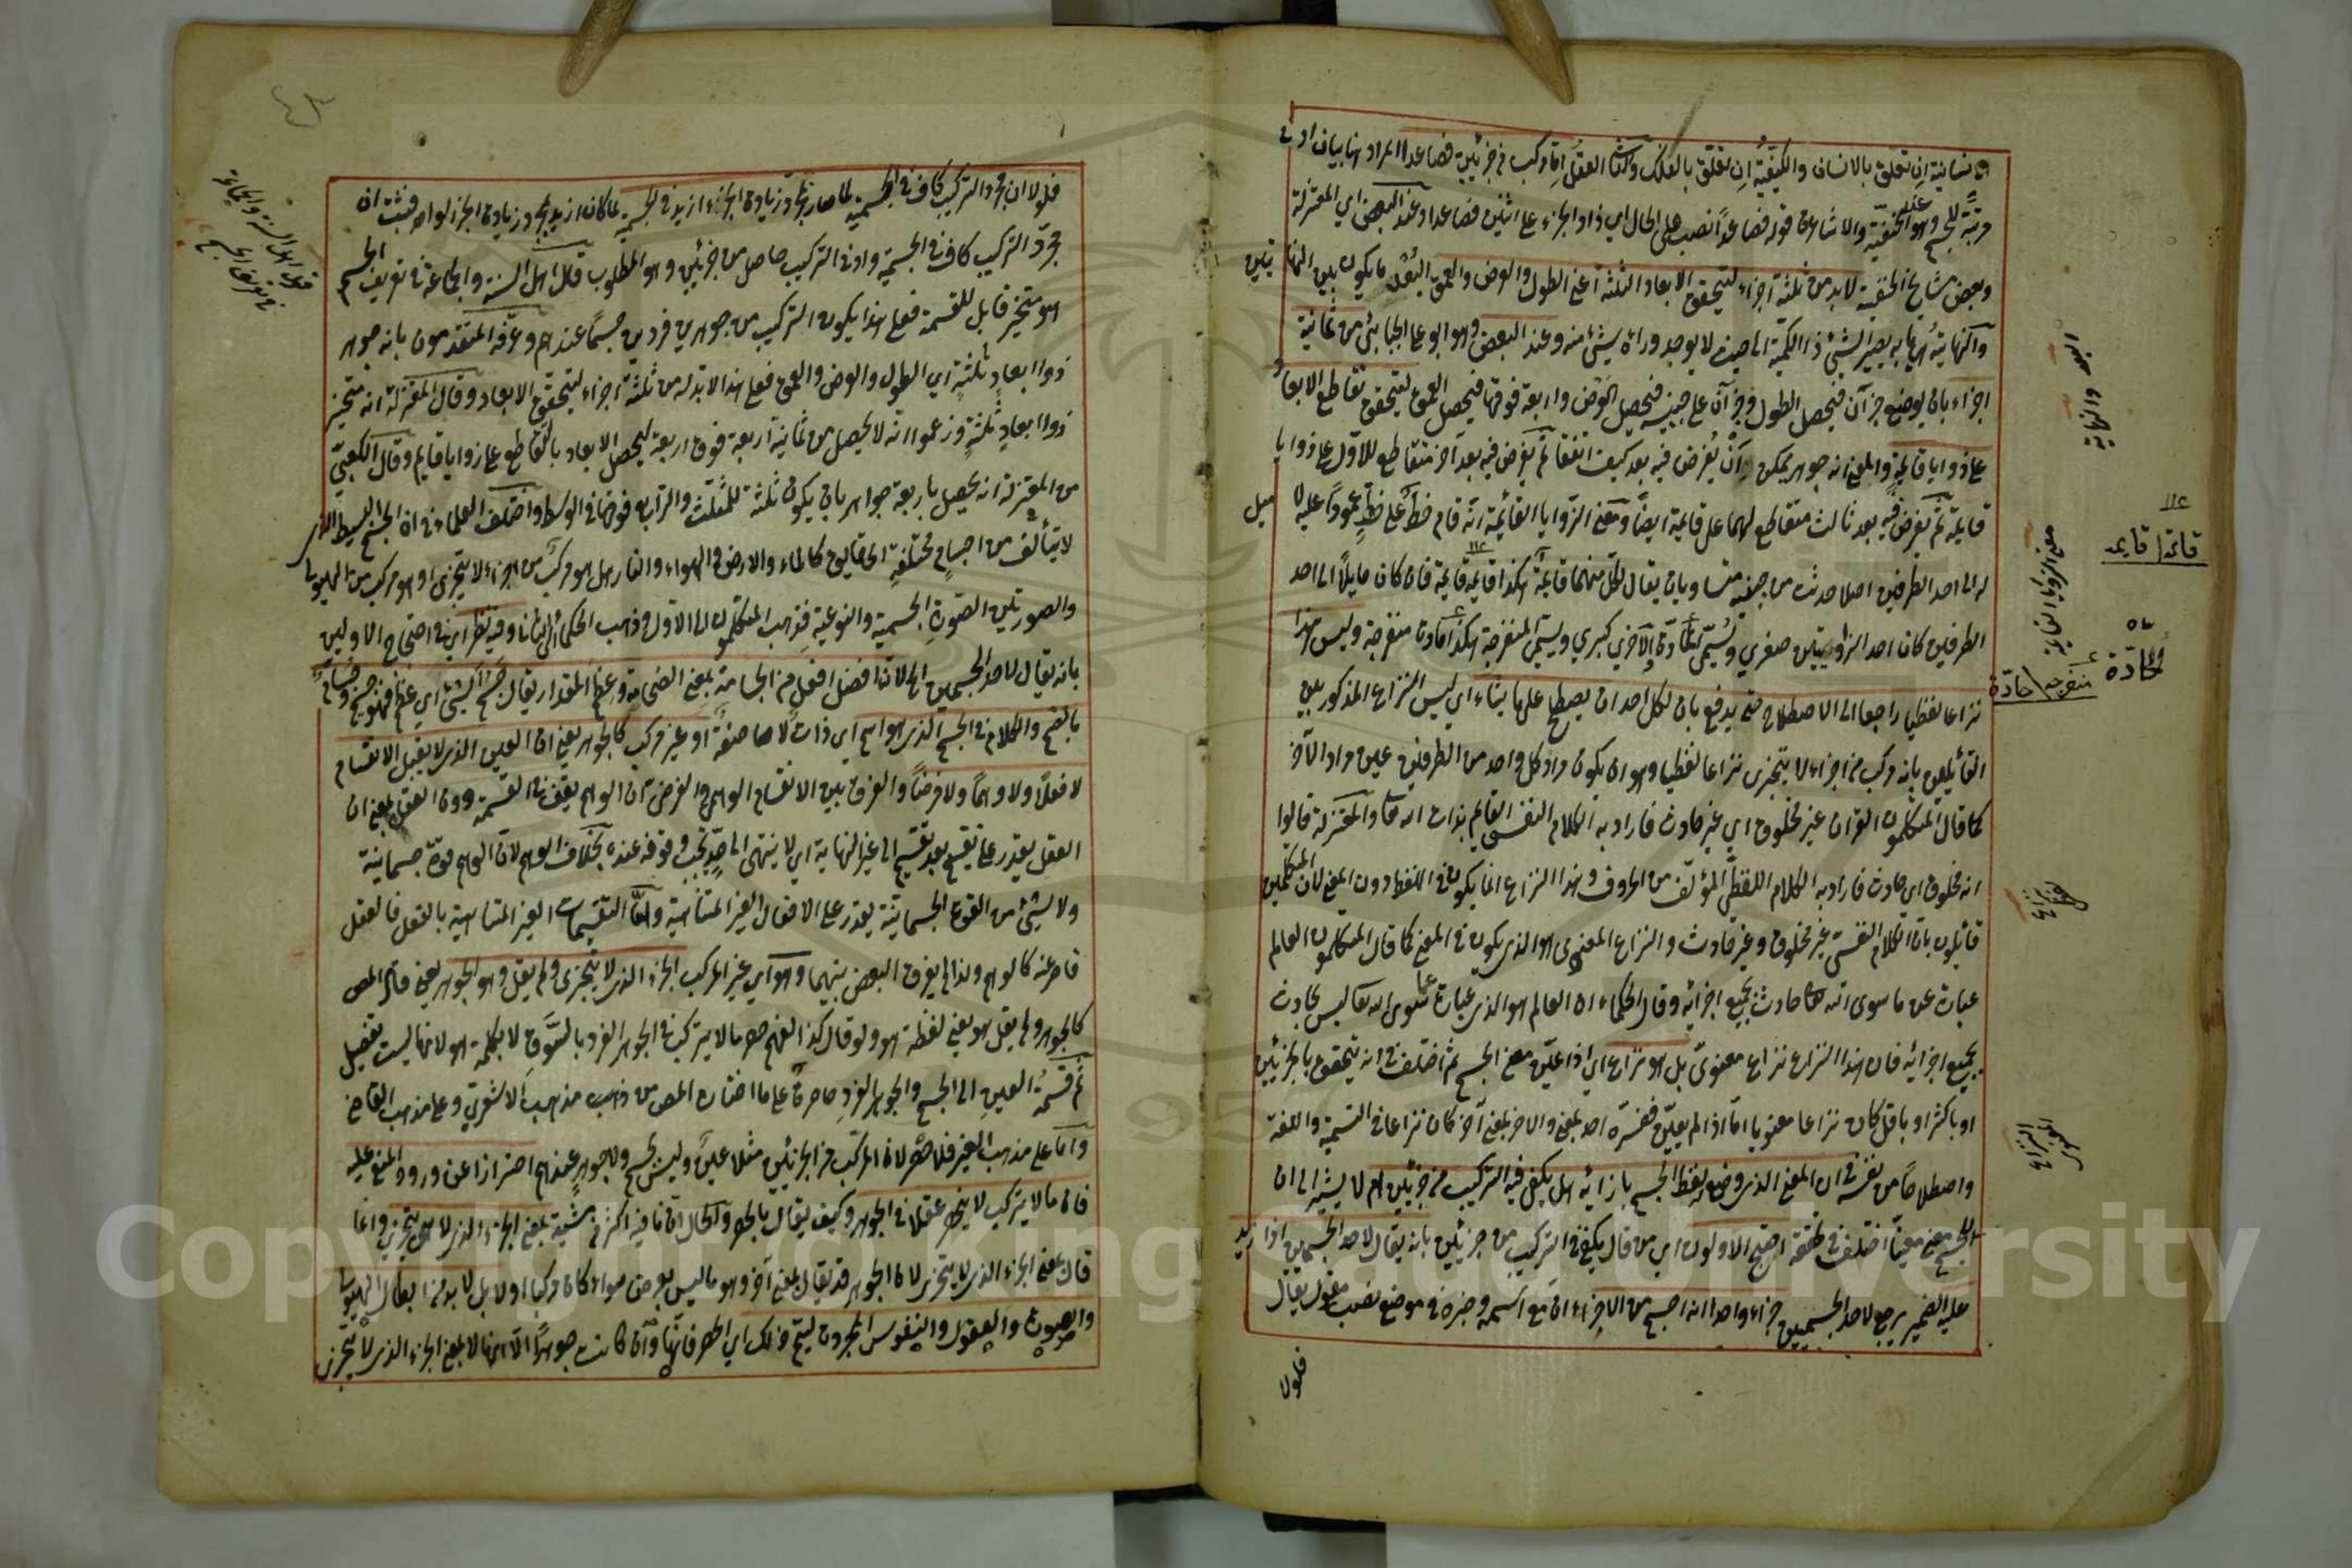 الانسانية ان تعلق بالانسان والكيفية ان تعلق بالفلك وكذا العقل اما مركب من جزئين فصاعدا المراد هنا بيان ادنى
مرتبة للجسم وهو عند الحنفية والاشاعرة قوله فصاعدا نصب على الحال اي زاد الجزء على اثنين فصاعدا وعند البعض اي المعتزلة
وبعض مشايخ الحنفية لابد من ثلثة اجزاء ليتحقق الابعاد الثلثة اعني الطول والعرض والعمق البعد ما يكون بين النهايتين
والنهاية ما به يصير الشيء ذا الكمية الى حيث لا يوجد وراءه شيء منه وعند البعض وهو ابو علي الجبائي من ثمانية
اجزاء بان يوضع جزآن فيحصل الطول وجزآن على جنبيه فيحصل العرض واربعة فوقها فيحصل العمق ليتحقق تقاطع الابعاد
على زوايا قايمة والمعنى انه جوهر يمكن ان يفرض فيه بعد كيف اتفق ثم يفرض فيه بعد آخر متقاطع للاول على زوايا
قايمة ثم يفرض فيه بعد ثالث متقاطع لهما على قايمة ايضا ومعنى الزوايا القائمة انه قام خط على خط عمودا عليه لا ميل
له الى احد الطرفين اصلا حدثت من جنبيه متساويان يقال لكل منهما قايمة هكذا قايمة قايمة فان كان مايلا الى احد
الطرفين كان احد الزاويتين صغرى وتسمى الحادة والاخرى كبرى ويسمى المنفرجة هكذا حادة منفرجة وليس هذا
نزاعا لفظيا راجعا الى الاصطلاح حتى يدفع بان لكل احد ان يصطلح على ما يشاء اي ليس النزاع المذكور بين
القائلين بانه مركب من اجزاء لا يتجزى نزاعا لفظيا وهو ان يكون مراد كل واحد من الطرفين عين مراد الآخر
كما قال المتكلمون القرآن غير مخلوق اي غير حادث فاراد به الكلام النفسي القايم بذات الله تعا والمعتزلة قالوا
انه مخلوق اي حادث فاراد به الكلام اللفظي المؤلف من الحروف وهذا النزاع انما يكون في اللفظ دون المعنى لان المتكلمين
قائلون بان الكلام النفسي غير مخلوق وغير حادث والنزاع المعنوي هو الذي يكون في المعنى كما قال المتكلمون العالم
عبارة عن ما سوى الله تعا حادث بجميع اجزائه وقال الحكماء ان العالم هو الذي عبارة عما سوى الله تعا ليس بحادث
بجميع اجزائه فان هذا النزاع نزاع معنوي بل هو نزاع اي اذا عين معنى الجسم ثم اختلف في انه يتحقق بالجزئين
او باكثر او باقل كان نزاعا معنويا اما اذا لم يعين ففسره احد بمعنى والاخر بمعنى آخر كان نزاعا في التسمية واللغة
واصطلاحا من نفسه في ان المعنى الذي وضع لفظ الجسم بازائه هل يكفي فيه التركيب من جزئين ام لا يشير الى ان
للجسم معنى معينا اختلف في تحققه احتج الاولون اي من قال يكفي التركيب من جزئين بانه يقال لاحد الجسمين اذا زيد
عليه الضمير يرجع لاحد الجسمين جزء واحد انه اجسم من الاخر ان مع اسمه وخبره في موضع نصب مقول يقال
فلولا
قائمة قايمة
الحادة
منفرجة حادة
معنى الزوايا القايمة
فلولا ان مجرد التركيب كاف في الجسمية لما صار بمجرد زيادة الجزء ازيد في الجسمية لما كان ازيد بمجرد زيادة الجزء الواحد فثبت ان
مجرد التركيب كاف في الجسمية وادنى التركيب حاصل من جزئين وهو المطلوب قال اهل السنة والجماعة في تعريف الجسم
هو متحيز قابل للقسمة فعلى هذا يكون التركيب من جوهرين فردين جسما عندهم وعرفه المتقدمون بانه جوهر
ذو ابعاد ثلثة اي الطول والعرض والعمق فعلى هذا لابد له من ثلثة اجزاء ليتحقق الابعاد وقال المعتزلة انه متحيز
ذو ابعاد ثلثة وزعموا انه لا يحصل من ثمانية اربعة فوق اربعة ليحصل الابعاد بالتقاطع على زوايا قايم وقال الكعبي
من المعتزلة انه يحصل باربعة جواهر بان يكون ثلثة للمثلث والرابع فوقها في الوسط واختلف العلماء في ان الجسم البسيط الذي
لا يتألف من اجسام مختلفة الحقايق كالماء والارض والهواء والنار هل هو مركب من اجزاء لا يتجزى او هو مركب من الهيولى
والصورتين الصورة الجسمية والنوعية فذهب المتكلمون الى الاول وذهب الحكماء الى الثاني وفيه نظر اي في احتجاج الاولين
بانه يقال لاحد الجسمين الى لانه افضل افعل من الجسامة بمعنى الضخامة وعظم المقدار يقال جسم الشيء اي عظم فهو جسيم وجسام
بالضم والكلام في الجسم الذي هو اسم اي ذات لا صفة او غير مركب كالجوهر يعني ان العين الذي لا يقبل الانقسام
لا فعلا ولا وهما ولا فرضا والفرق بين الانقسام الوهمي والفرضي ان الوهم يقف في القسمة دون العقل بمعنى ان
العقل يقدر على تقسيم بعد تقسيم الى غير النهاية اي لا ينتهي الى حد يجب وقوفه عنده بخلاف الوهم لان الوهم قوة جسمانية
ولا شيء من القوى الجسمانية يقدر على الافعال الغير المتناهية واما التقسيمات الغير المتناهية بالفعل فالعقل
قاصر عنه كالوهم ولذا لم يفرق البعض بينهما وهو اي غير المركب الجزء الذي لا يتجزى ولم يقل وهو الجوهر يعني قال المص
كالجوهر ولم يقل هو يعني لفظة هو ولو قال كذا لفهم حصر ما لا يتركب في الجوهر الفرد بالسوق لا بكلمة هو لانها ليست تفصيل
ثم قسمة العين الى الجسم والجوهر الفرد حاصرة على ما اختاره المص من ذهب مذهب الاشعري وعلى مذهب القاضي
واما على مذهب الغير فلا حصر لان المركب من الجزئين مثلا عين وليس بجسم ولا جوهر عندهم احترازا عن ورود المنع عليه
فان ما لا يتركب لا ينحصر عقلا في الجوهر وكيف يقال بالحصر والحال ان ما فيه اكثر في بمعنى الجزء الذي لا يتجزى وانما
قال بمعنى الجزء الذي لا يتجزى لان الجوهر قد يقال بمعنى آخر وهو ما ليس بعرض سواء كان مركبا او لا بل لا بد من ابطال الهيولى
والصورة والعقول والنفوس المجردة ليتم ذلك اي الحصر فانها وان كانت جوهرا الا انها لا بمعنى الجزء الذي لا يتجزى
قول اهل السنة والجماعة
في تعريف الجسم
Copyright © King Saud University